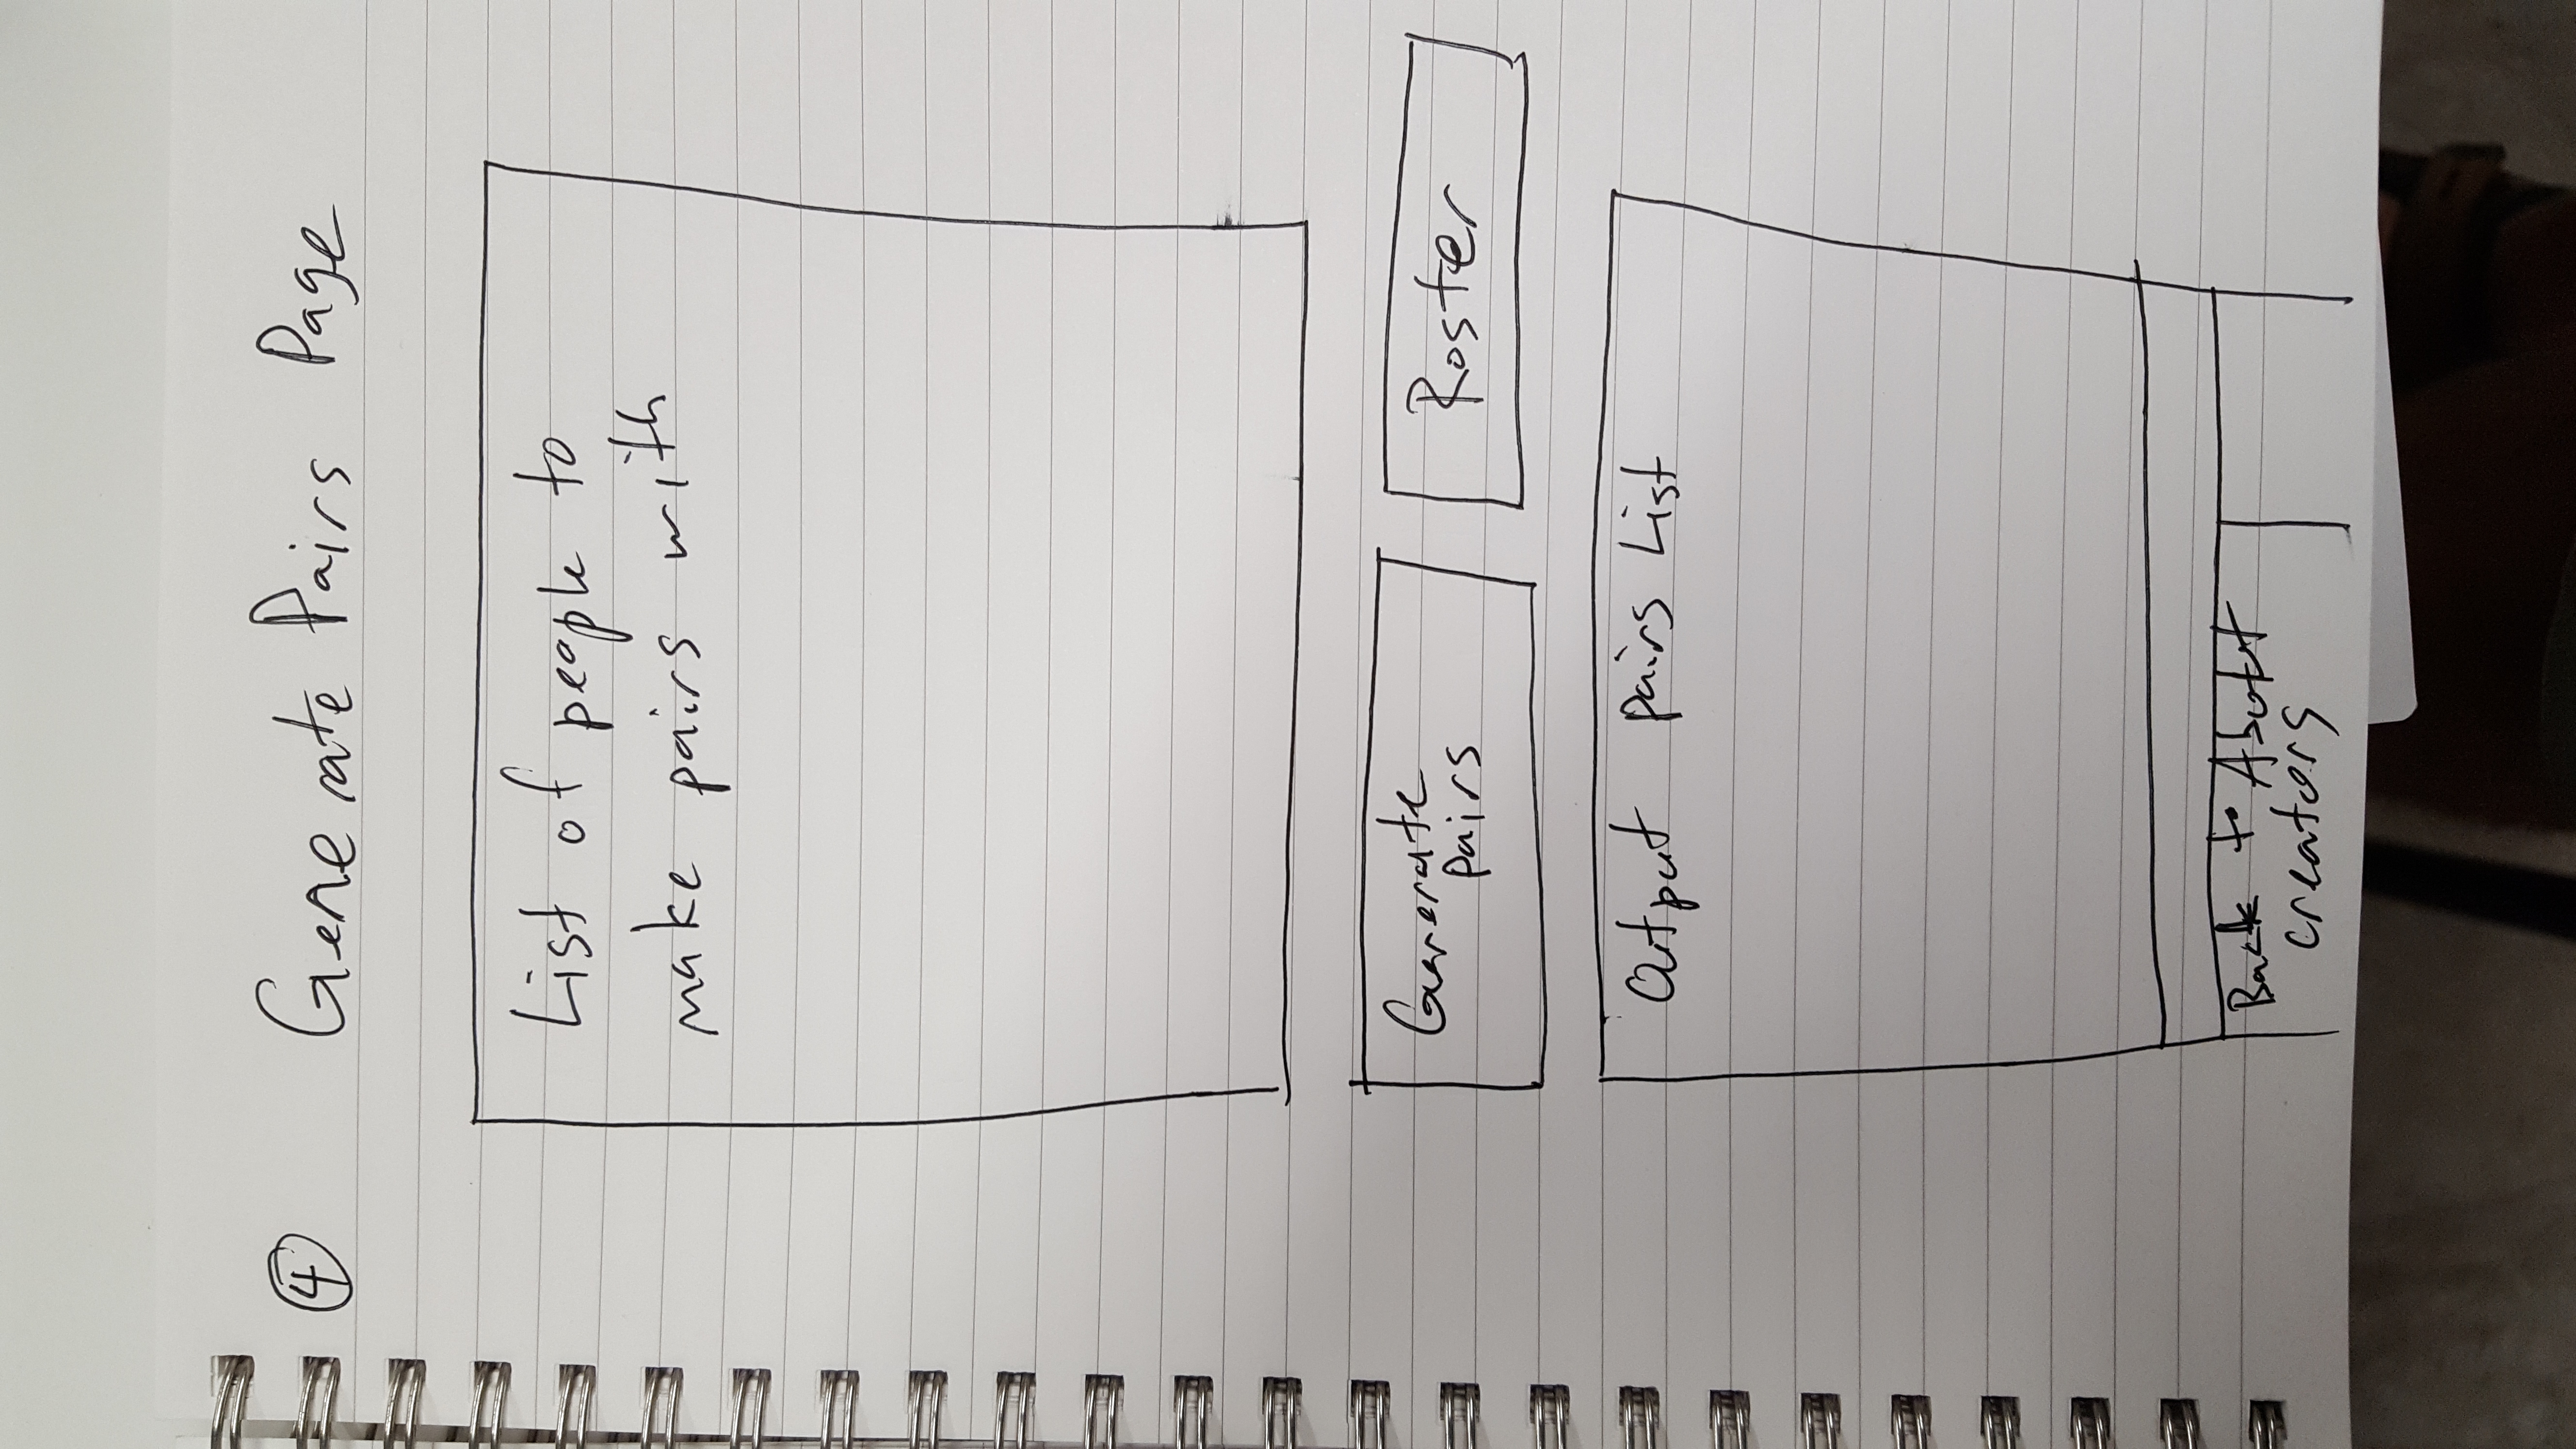 4 Generate Pairs Page
List of people to
make pairs with
Generate
pairs
Roster
Output pairs List
Back to About
creators